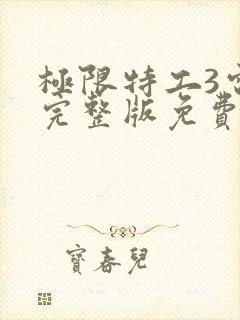 極限特工3
完整版免費
寶春兒